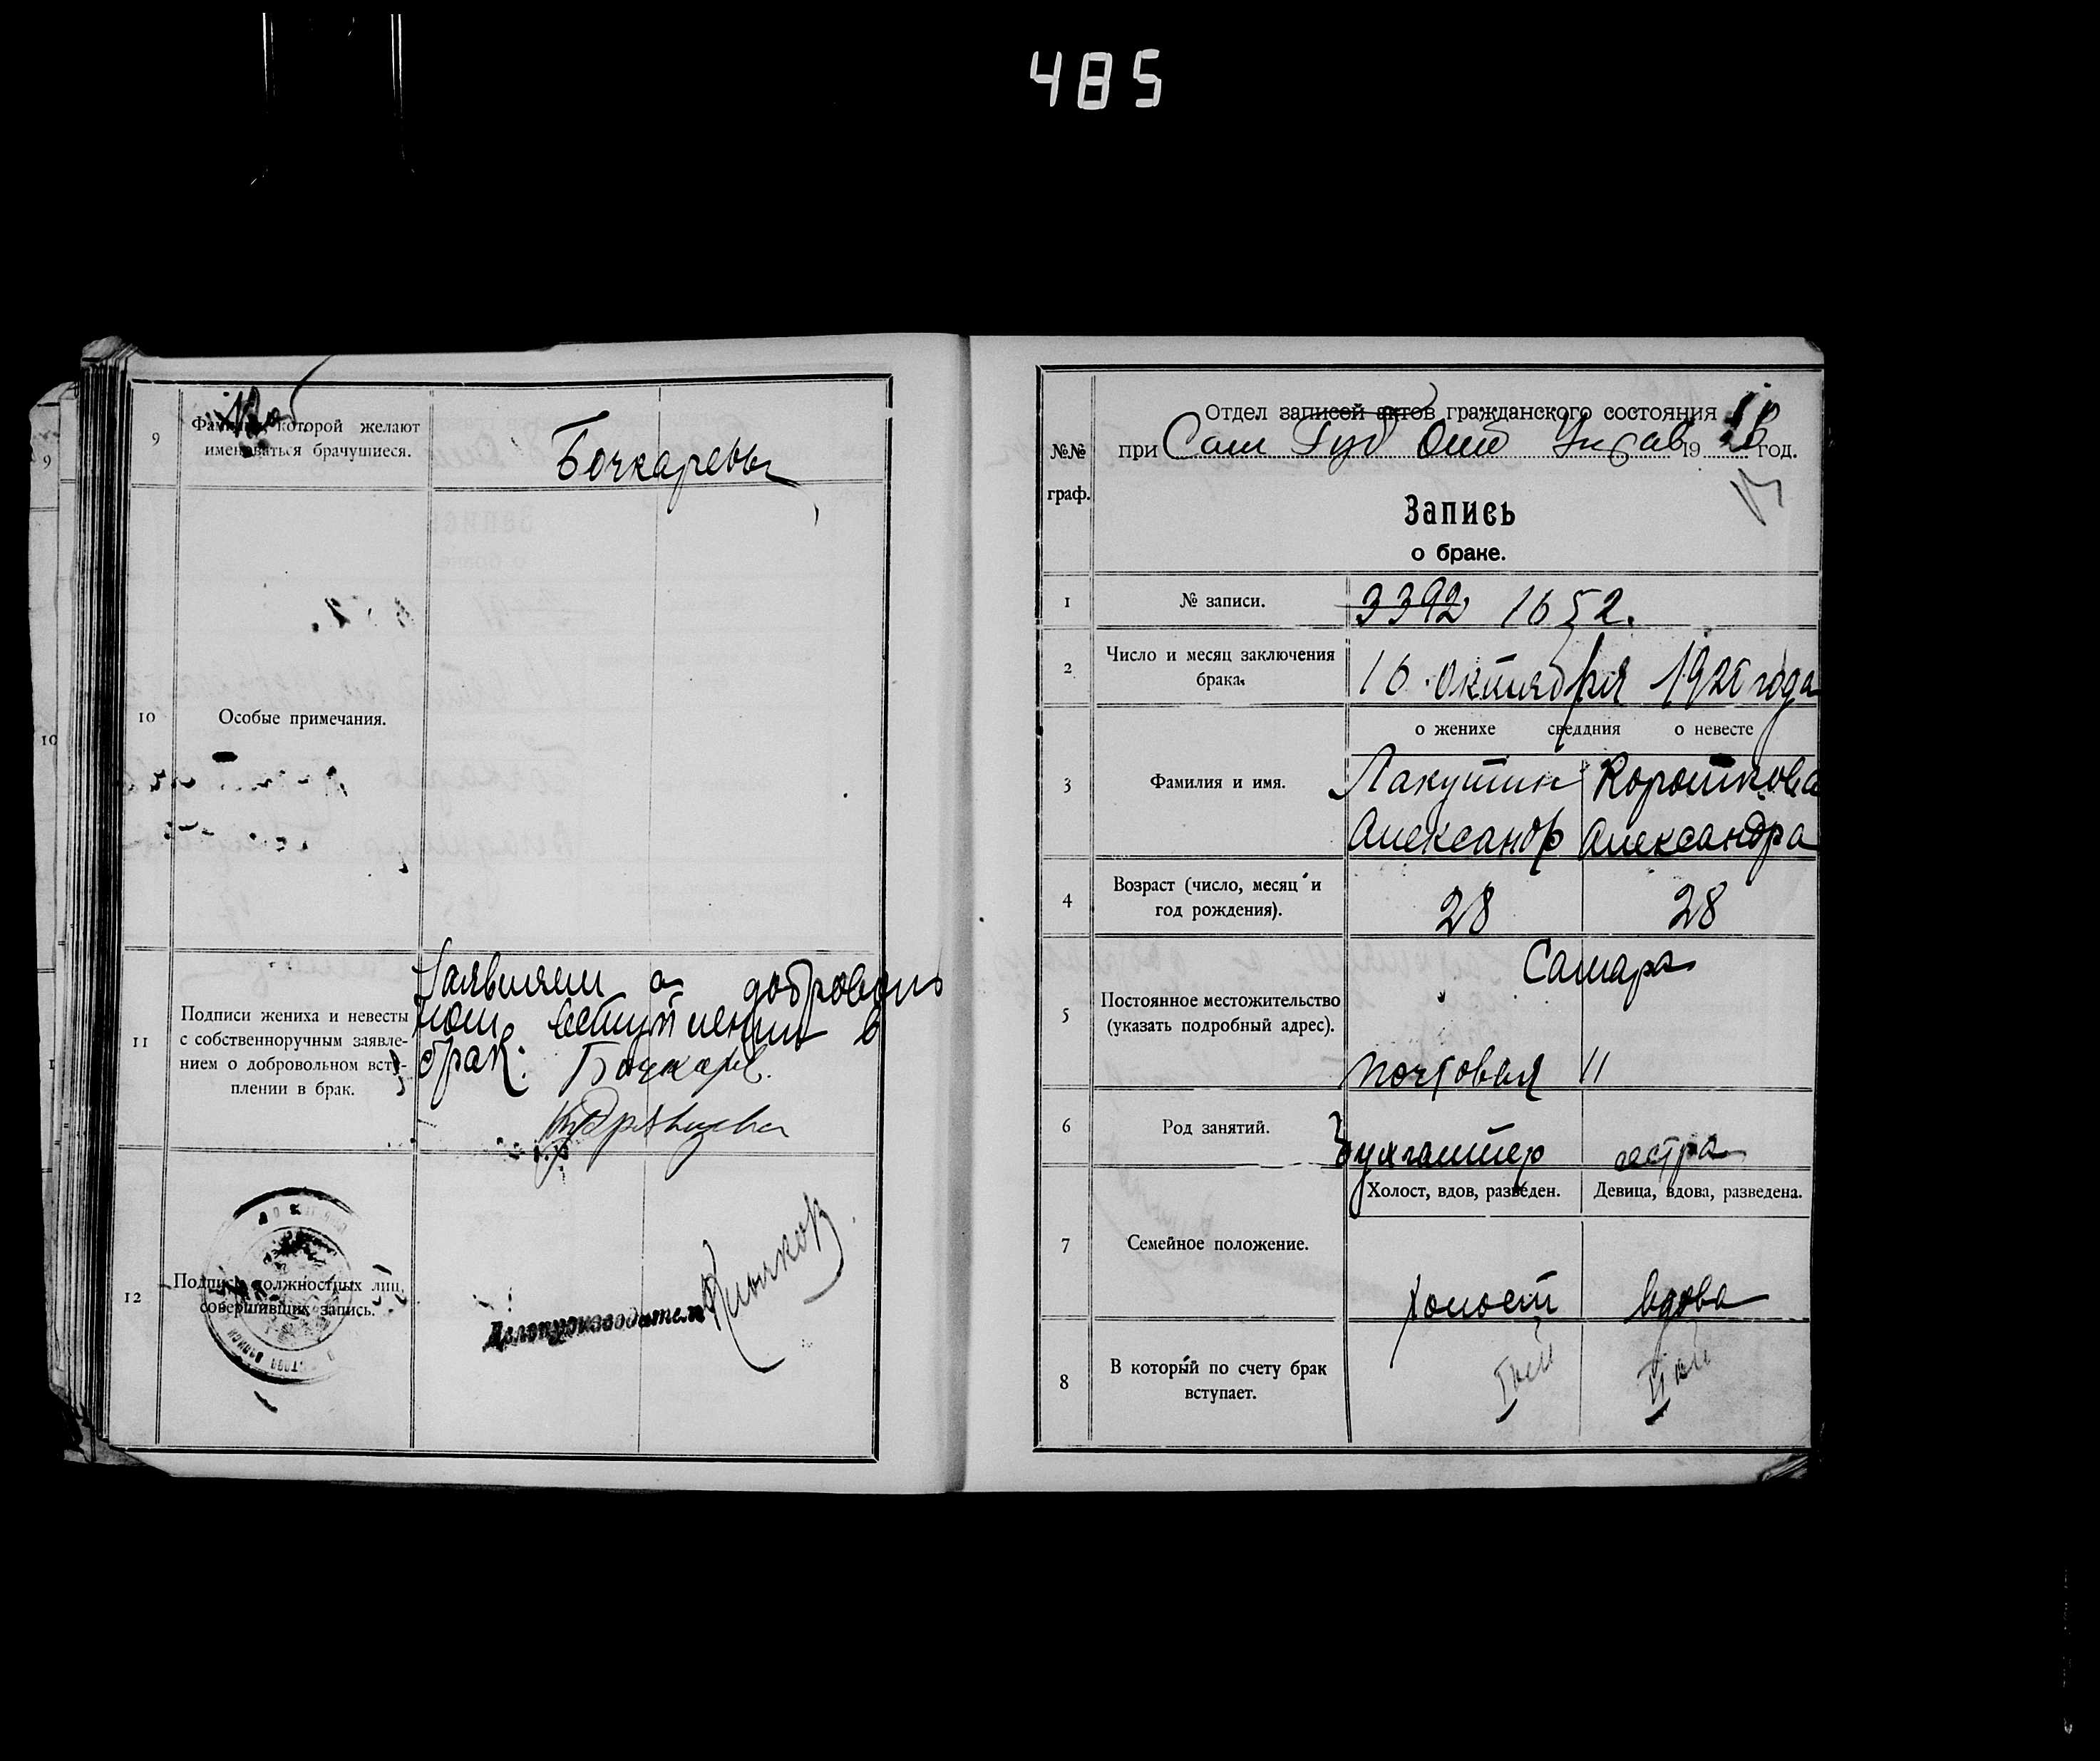 485
9
Фамилия, которой желают
именоваться брачущиеся.
Бочкаревы
10
Особые примечания.
11
Подписи жениха и невесты
с собственноручным заявле-
нием о добровольном всту-
плении в брак.
Заявляем о доброволь
ном вступлении в
брак: Бочкарев.
Кудрявцева
12
Подписи должностных лиц,
совершивших запись.
Делопроизводитель
9
10
№№
граф.
Отдел записей актов гражданского состояния
при Сам Губ Отд Управ 19 год.
Запись
о браке.
1
№ записи.
3392 1652.
2
Число и месяц заключения
брака.
16 октября 1920 года
о женихе сведдния о невесте
3
Фамилия и имя.
Лакутин Короткова
Александр Александра
4
Возраст (число, месяц и
год рождения).
28 28
5
Постоянное местожительство
(указать подробный адрес).
Самара
почтовая 11
6
Род занятий.
Бухгалтер сестра
Холост, вдов, разведен. Девица, вдова, разведена.
7
Семейное положение.
холост вдова
8
В который по счету брак
вступает.
Iый IIой